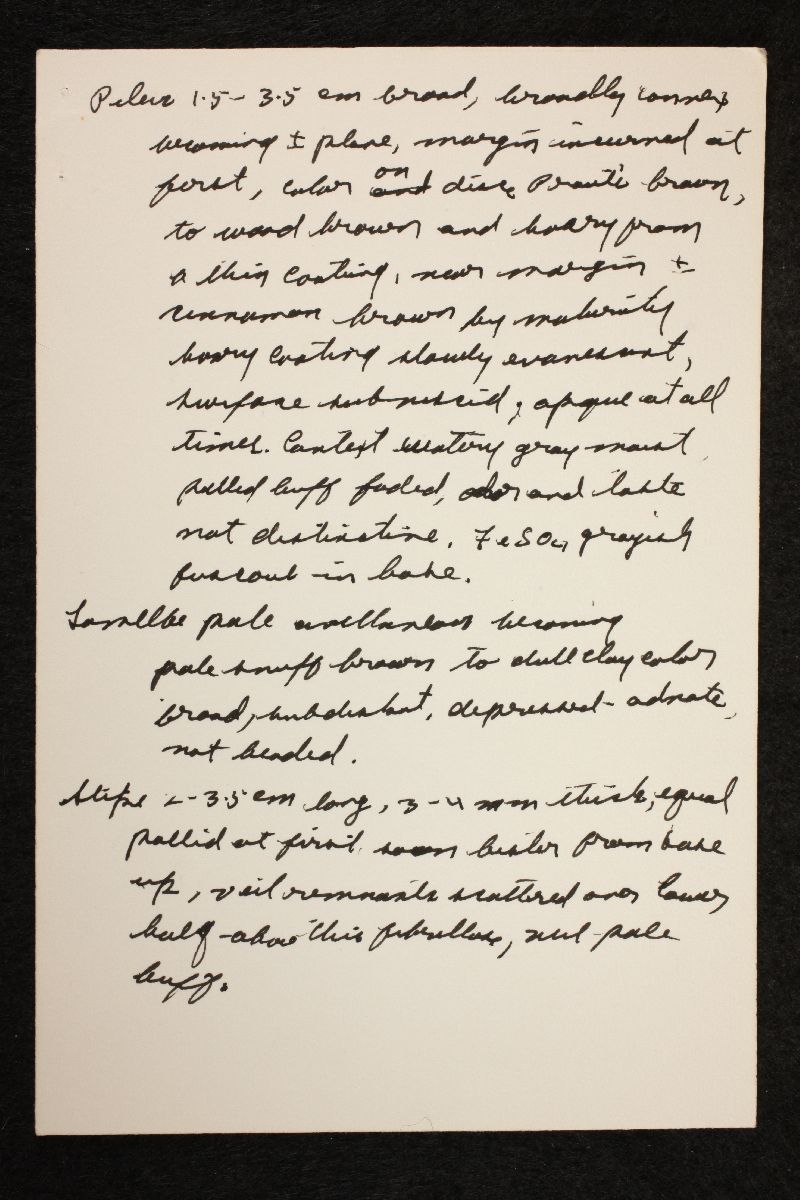 Pileus 1.5-3.5 cm broad, broadly convex
becoming ± plane, margin incurved at
first, color on and disc Prouts brown,
to wood brown and hoary from
a thin coating, near margin ±
cinnamon brown by maturity
hoary coating slowly evanescent,
surface subviscid, opaque at all
times. Context watery gray moist
pallid buff faded, odor and taste
not distinctive. FeSO4 grayish
fuscous in base.
Lamellae pale avellaneous becoming
pale snuff brown to dull clay color
broad, subdistant, depressed-adnate,
not beaded.
Stipe 2-3.5 cm long, 3-4 mm thick, equal
pallid at first soon bister from base
up, veil remnants scattered over lower
half - above this fibrillose, veil pale
buff.